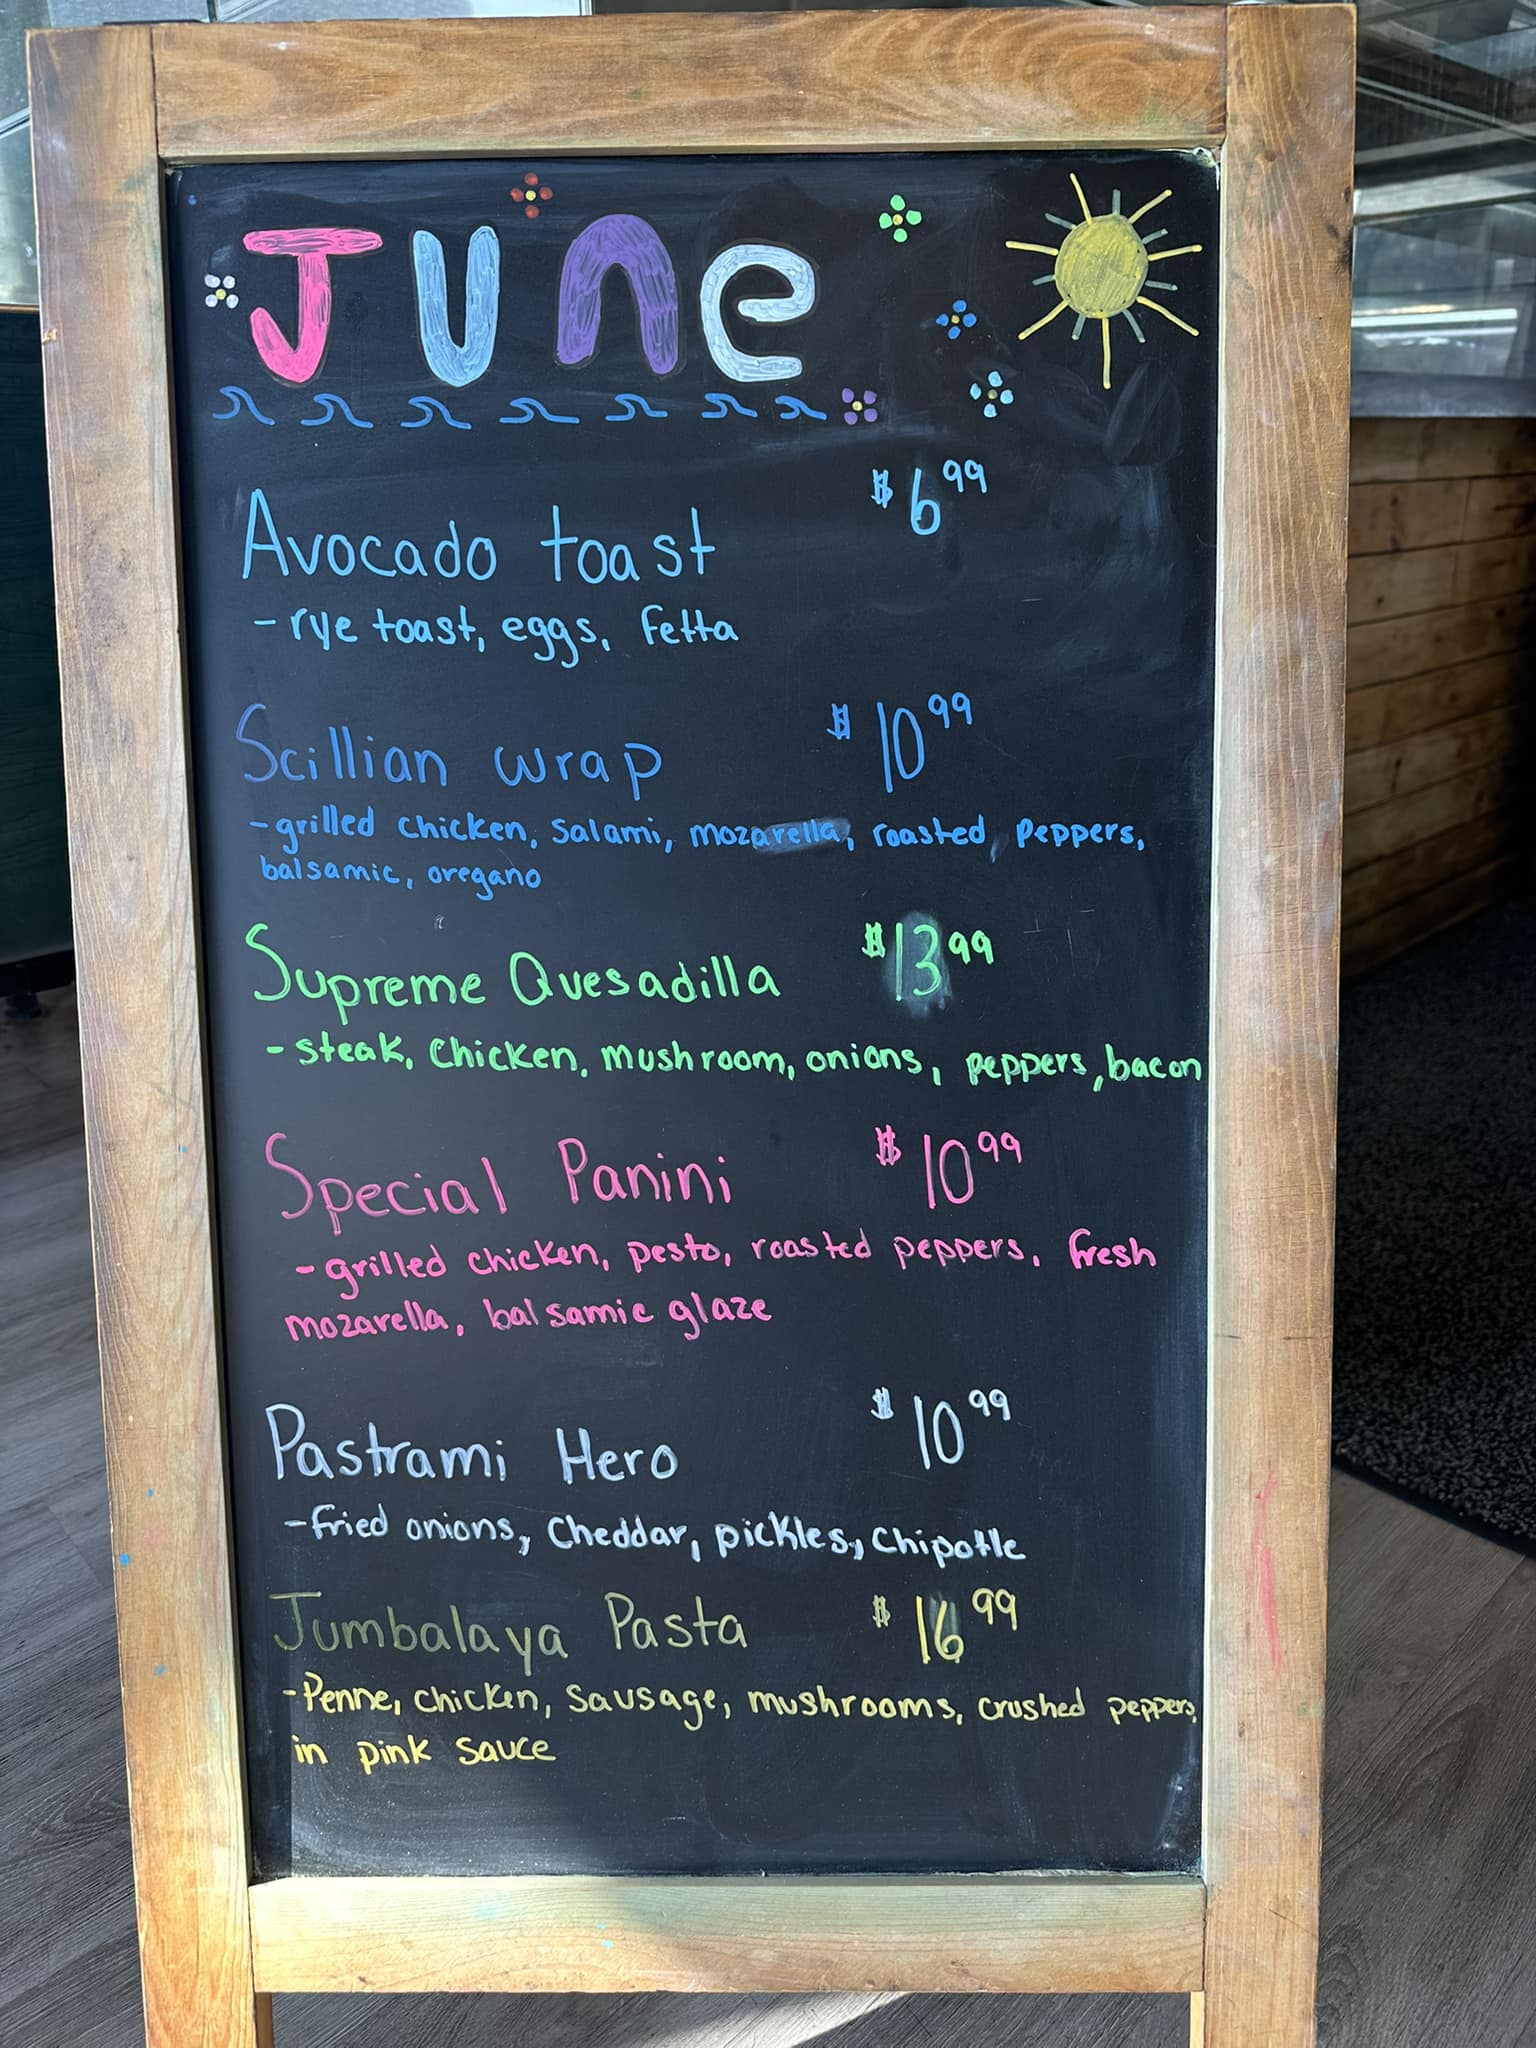 June
Avocado toast $6.99
- rye toast, eggs, fetta
Scillian wrap $10.99
- grilled chicken, salami, mozarella, roasted peppers,
balsamic, oregano
Supreme Quesadilla $13.99
- steak, chicken, mushroom, onions, peppers, bacon
Special Panini $10.99
- grilled chicken, pesto, roasted peppers, fresh
mozarella, balsamic glaze
Pastrami Hero $10.99
- fried onions, cheddar, pickles, chipotle
Jumbalaya Pasta $16.99
- Penne, chicken, sausage, mushrooms, crushed peppers,
in pink sauce